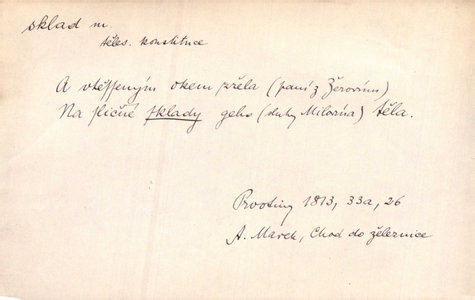 sklad m.
těles. konstituce
A vtěſſeným okem zřela (paní z Žerovína)
Na ſličné ſklady geho (duhy Milovína) těla.
Prvotiny 1813, 33a, 26
A. Marek, Chod do železnice